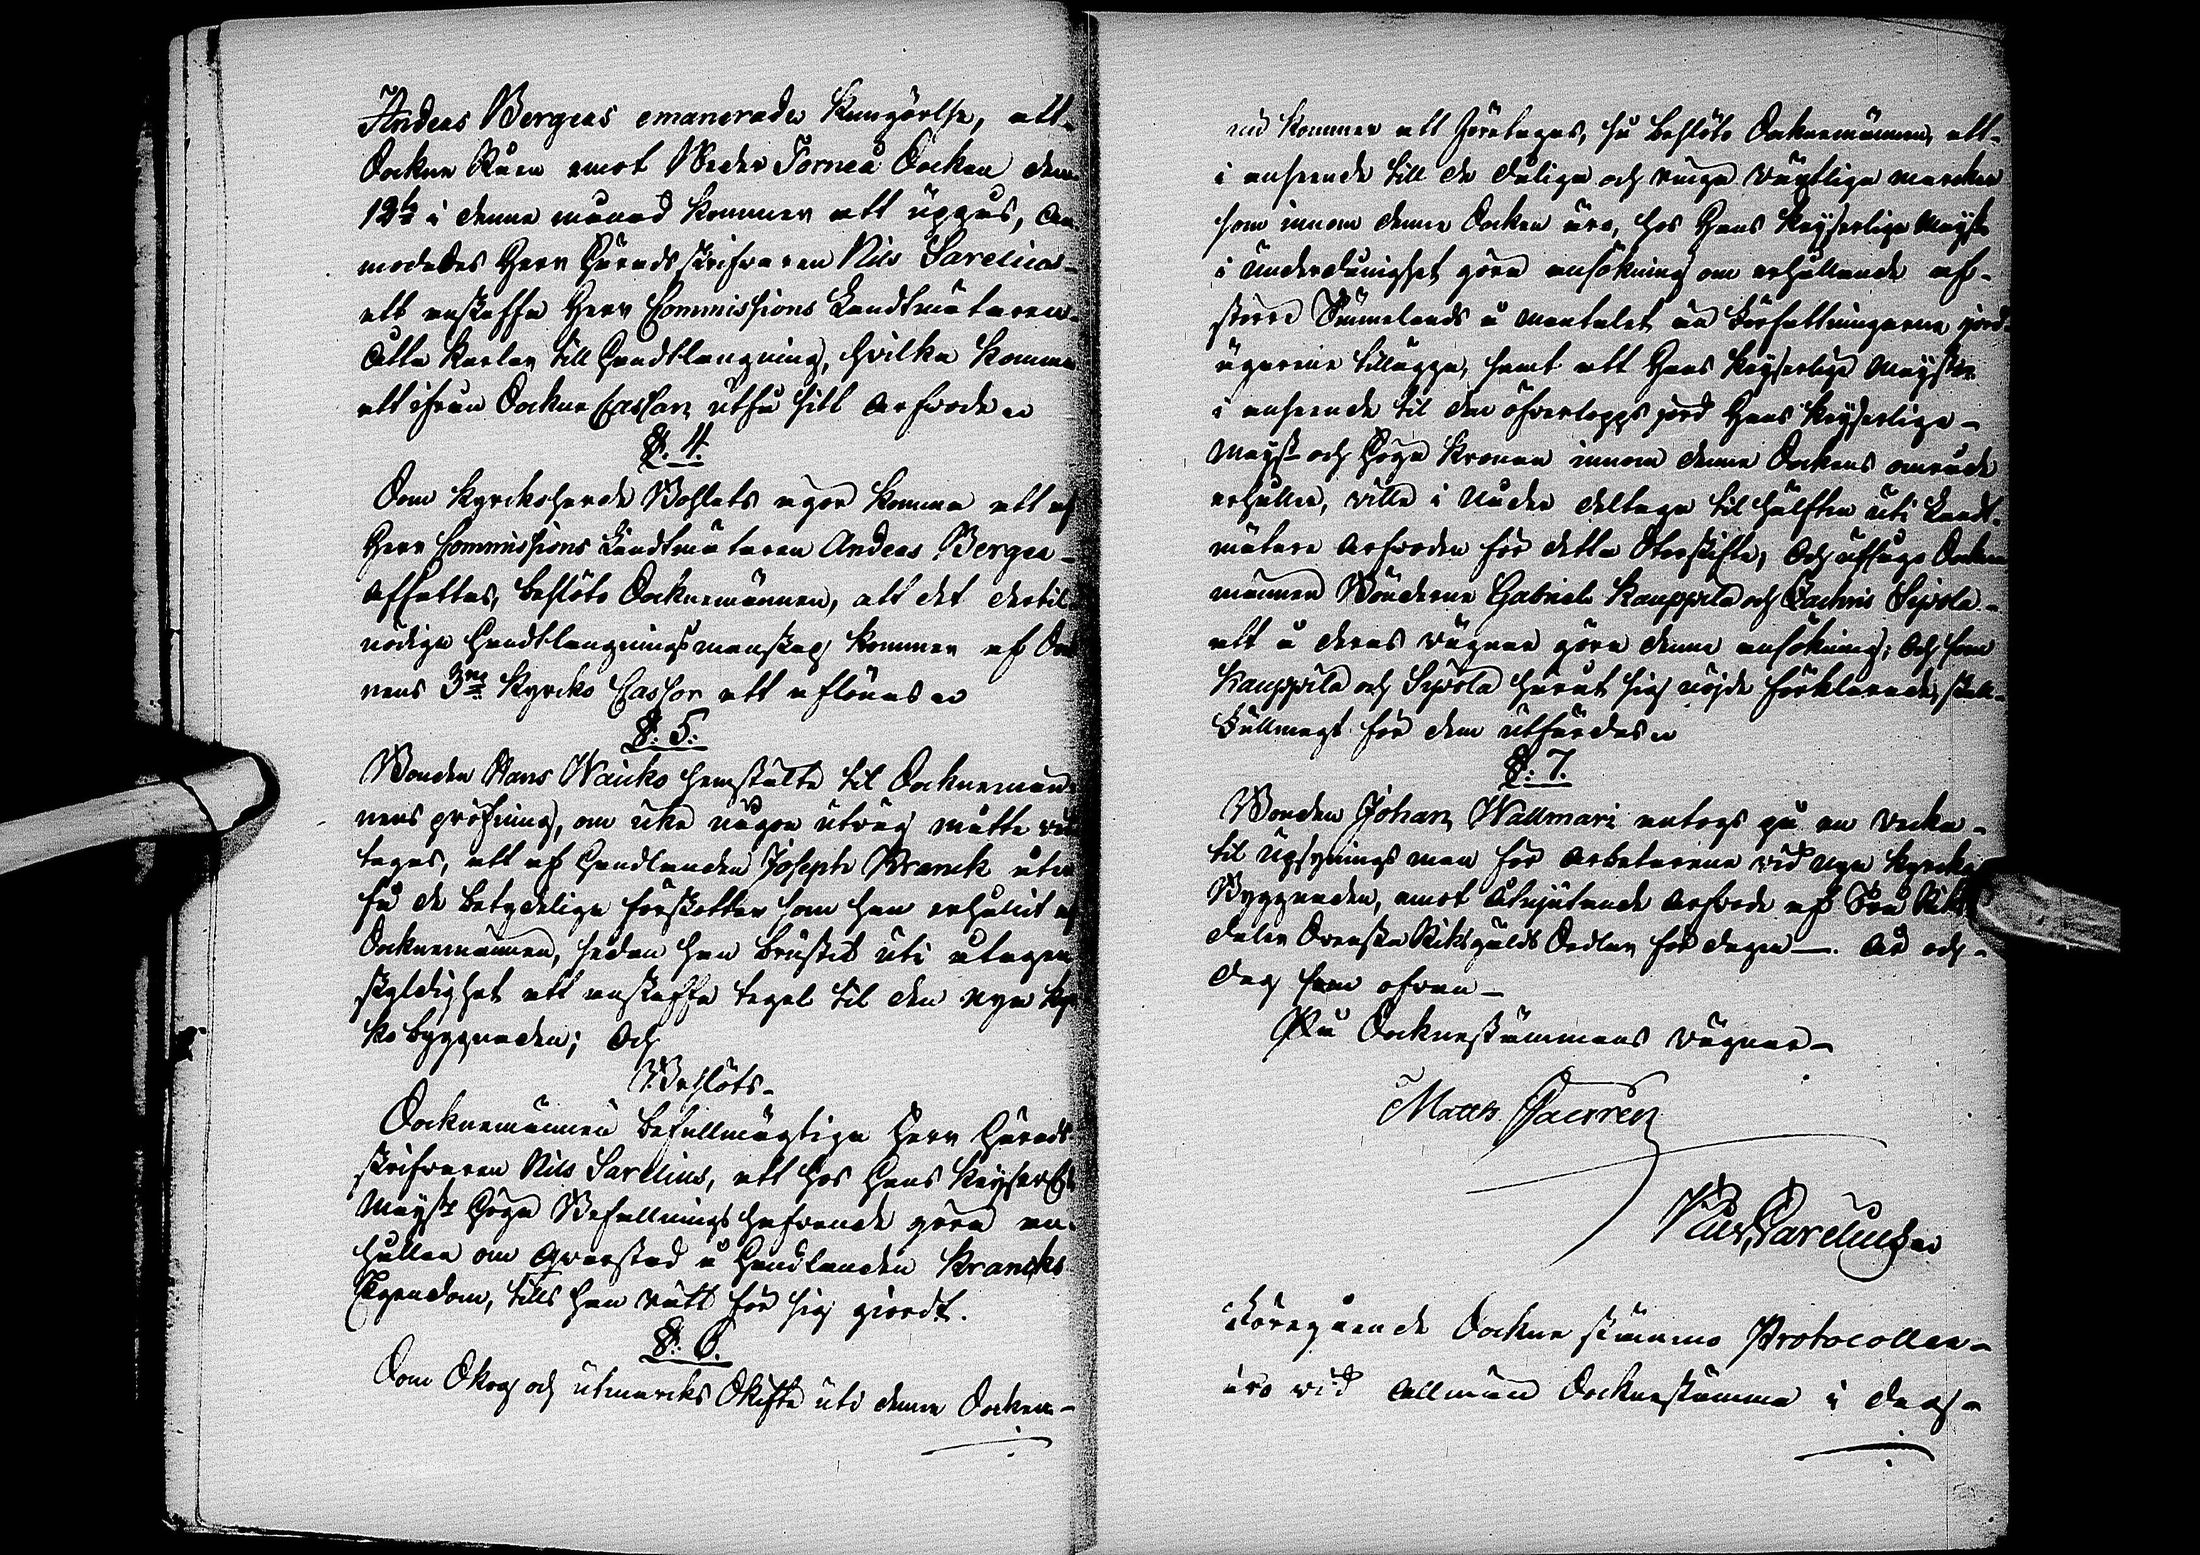 Andeas Bergeas emanerade Kungörelse, att
Sockne Råen emot Neder Torneå Socken den
12te i denne månad kommer att uppgås, an
modades Herr Häradsskrifvaren Nils Sarelius
att anskaffa Herr Commissions Landtmätaren
åtta Karlar till Handtlangning, hvilka komma
att ifrån Sockne Cassan utfå sitt arfvode
§. 4.
Som Kyrkoherde Bohlets egor komma att af
Herr Commissions Landtmätaren Andeas Bergea
affattas, beslöto Socknemännen, att det dertil
nödiga Handtlangningsmanskap kommer af Sock
nens 3ne Kyrcko Cassor att aflönas
§. 5.
Bonden Hans Waicko hemstälte til Socknemän
nens pröfning, om icke någon utväg måtte vid
tagas, att af Handlanden Joseph Kranck åter
få de betydeliga förskotter som han erhållit af
Socknemännen, sedan han brustit uti åtagen
skyldighet att anskaffa tegel til den nya Kyr
kobyggnaden; och
Beslöts
Socknemännen befullmägtiga Herr Härads
skrifvaren Nils Sarelius, att hos Hans Kejserlige
Mayst Höga Befallningshafvande göra an
hållan om qvarstad å Handlanden Krancks
Egendom, tills han rätt för sig giordt.
§. 6.
Som Skog och utmarcks Skifte uti denna Socken
nu kommer att företagas, så beslöto Socknemännen, att
i anseende till de dåliga och ringa växtliga marcker
som innom denna Socken äro, hos Hans Kejserliga Mayst
i underdånighet göra ansökning om erhållande af
större Rymelands å mantalet än Författningarne jord
ägarene tillägga, samt att Hans Kejserlige Mayst
i anseende til den öfverlopps jord Hans Kejserlige
Mayst och Höga Kronan innom denna Sockens område
erhåller, ville i Nåder deltaga til hälften uti Landt
mätare Arfvoden för detta Storskifte, och uppdrogo Sockne
männen Bönderne Gabriel Kauppila och Zachris Sipola
att å deras vägnar göra denna ansökning; och som
Kauppila och Sipola härut sig nöjde förklarade, skulle
Fullmagt för dem utfärdas
§. 7.
Bonden Johan Wallmari antogs på en vecka
til Upsyningsman för Arbetarena vid nya Kyrcko
Byggnaden, emot åtnjutande Arfvode af Två Riks
daler Svenska Riksgälds Sedlar för dagen. År och
dag som ofvan
På Socknestämmans vägnar
Matts
Nils Sarelius
Föregående Sockne stämmo Protocoller
äro vid allmän Socknestämma i dag